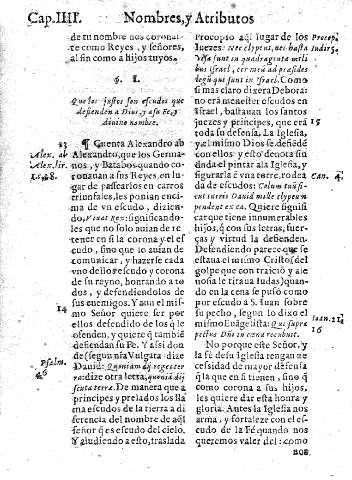 Cap. IIII.
Nombres, y Atributos
de tu nombre nos coronas-
te como Reyes, y señores,
al fin como a hijos tuyos.
§. I.
Que los justos son escudos que
defienden a Dios, y a su Fe, y
divino nombre.
13
Alex. ab
Alex. lir.
1. c. 28.
¶ Cuenta Alexandro ab
Alexandro, que los Germa-
nos, y Batabos quando co-
ronauan a sus Reyes, en lu-
gar de passearlos en carros
triunfales, los ponian enci-
ma de vn escudo, diziendo,
Viuat Rex: significandoles
que no solo auian de re-
tener en si la corona y el es-
cudo, sino que lo auian de
comunicar, y hazerse cada
vno dellos escudo y corona
de su reyno, honrando a to-
dos, y defendiendolos de
sus enemigos. Y aun el mis-
14
mo Señor quiere ser por
ellos defendido de los q̃ le
ofenden, y quiere q̃ tambiẽ
defiendan su Fe. Y assi don
Psalm.
46
de (segun nr̃a Vulgata) dize
Dauid:
dize otra letra,
De manera que a
principes y prelados los lla
ma escudos de la tierra a di
ferencia del nombre de aq̃l
señor q̃ es escudo del cielo.
Y aludiendo a esto, traslada
Procopio aquel lugar de los
Procop.
Iudic. 5.
Juezes: Nec clypeus, nec hasta
visa sunt in quadraginta milli
bus Israel, cor meũ ad præsides
legis qui sunt in Israel. Como
si mas claro dixera Debora:
no erà menester escudos en
15
Israel, bastauan los santos
juezes y principes, que erã
toda su defensa. La Iglesia,
y al mismo Dios se defiẽdẽ
con ellos: y esto denota sin
duda el pintar a la Iglesia, y
figurarla ẽ vna torre, rodea
Can. 4.
da de escudos: Collum tuũ si-
cut turris Dauid mille clypei
pendent ex ea. Quiere signifi
car que tiene innumerables
hijos, q̃ con sus letras, fuer-
ças y virtud la defienden.
Defendiendo parece que se
estaua el mismo Christo (del
golpe que con traicion y ale
uosia le tiraua Iudas) quan-
do en la cena se puso como
por escudo a S. Iuan sobre
su pecho, segun lo dixo el
Ioan. 21.
16
mismo Euãgelista: Qui supra
pectus Dñi in cena recubuit.
No porque este Señor, y
la fè de su Iglesia tengan ne
cessidad de mayor defensa
q̃ la que en si tienen, sino q̃
como corona a sus hijos,
les quiere dar esta honra y
gloria. Antes la Iglesia nos
arma, y fortaleze con el es-
cudo de la Fè quando nos
queremos valer del: como
nos